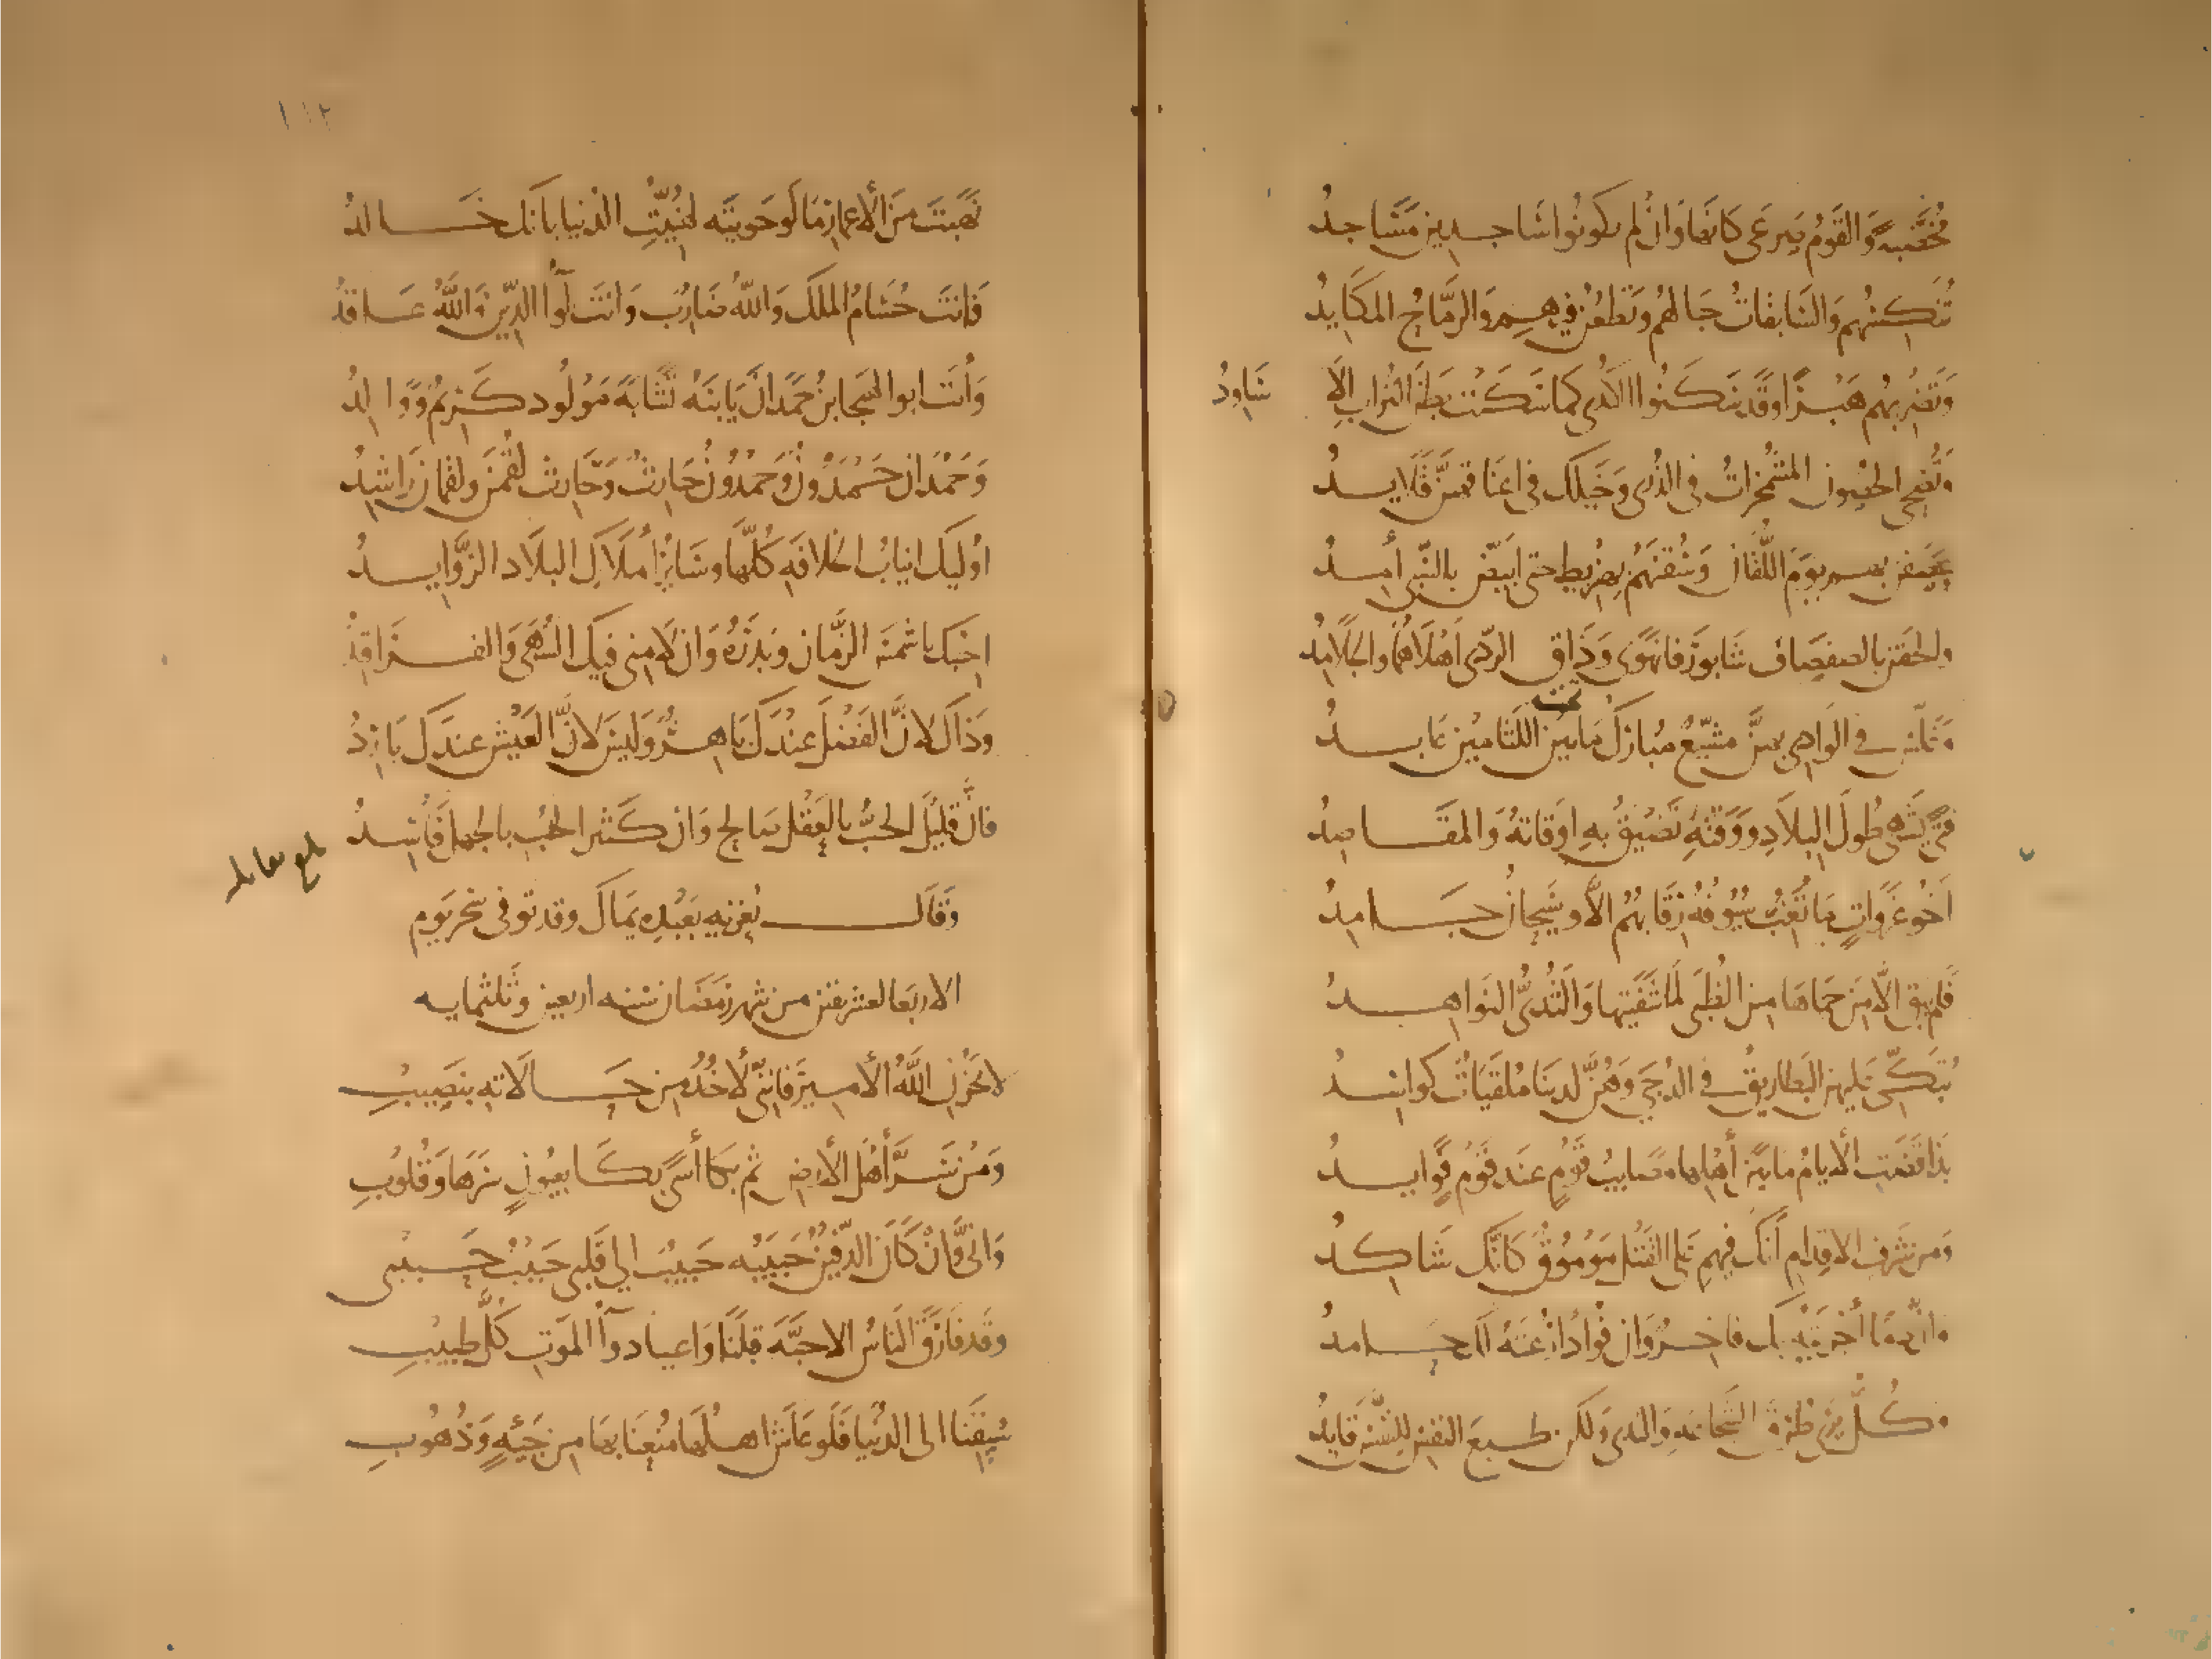 مُخَضَّبَةٌ وَالقَوْمُ صَرعَى كَانَهَا وَانْ لم يكونُوا سَاجِدِينَ مَسَاجِدُ
تُنَكِّسُهُم وَالسَابِقاتُ جبَالهُم وَتَطعُن فيهِم وَالرِّمَاحُ المكَايِدُ
وَتَضْرِبُهُم هَبْرًا وَقَد سَكَنُوا الكُدى كمَا سَكَنَت بَطنَ التُراب الاَ
سَاوِدُ
وَتُضحِى الحُصُون المشمَخِرّاتُ في الذُرى وَخَيلَك في اعنَاقهِنَّ قَلايدُ
عَصَفنَ بهم يومَ اللُّقَان وَسُقنَهُم بهنريط حتى ابيَضّ بالسَّبى آمِدُ
والحقنَ بالصفصَاف سَابورَ فانهَوَى وَذَاق الردَى اهْلاهُمَا والجَلامِدُ
وَغَلّس في الوَادِي بهنَّ مشَيّعٌ مُبَارَكُ مَا تحت اللثامَين عَابدُ
فَتًى يَشتَهِى طُولَ البلاَدِ وَوَقتَهُ تَضيقُ بهِ اوقاتهُ وَالمقَاصِدُ
اخُو غَزَواتٍ مَا تُغِبُّ سُيُوفُهُ رِقَابَهُمُ الاّ وسَيحَانُ جَامِدُ
فَلم يَبق الاّ مَن حمَاهَا مِنَ الظُبَى لمَا شَفَتيهَا وَالثُدىُّ النَوَاهِدُ
تُبَكّى عَليهِن البَطَاريقُ في الدُجَى وَهُنَّ لدينَا مُلقَيَاتٌ كوَاسِدُ
بذَا قَضَتِ الأيامُ مَا بَيْنَ أهْلِهَا مصَايبُ قَوْمٍ عندَ قَوْمٍ فَوَايدُ
وَمن شَرَفِ الاقدَامِ أنكَ فيهِم عَلى القَتل مَوْمُوقٌ كَانّكَ شَاكِدُ
وَانّ دَمًا أجْرَيْتَهُ بك فاخِرٌ وَان فوَادًا رُعْتَهُ لكَ حَامِدُ
وكُلٌّ يَرى طُرْقَ الشَجَاعَةِ وَالنَدى وَلكن طَبعَ النَفسِ للنَفسِ قَايِدُ
١١٢
نَهَبْتَ مِنَ الأعمَارِ مَا لَو حَوَيتَه لهُنِّيتِ الدُنيا بانك خَالدُ
فَانتَ حُسَامُ المُلكِ وَاللهُ ضَارِبٌ وَانتَ لوَاءُ الدِّينِ وَاللهُ عَاقدُ
وَأنتَ ابو الهَيجا بنُ حَمدَانَ يَا ابنَهُ تَشَابَهَ مَوْلُودٌ كَرِيمٌ وَوَالِدُ
وَحَمْدَانُ حَمْدُونٌ وَحَمْدُونُ حَارِثٌ وَحَارثُ لُقْمنٌ ولقمَانُ رَاشِدُ
اوليكَ انيابُ الخلافَةِ كُلّهَا وسَايرُ أملاَكِ البلاَد الزوَايِدُ
احِبُّكَ يا شَمْسَ الزَّمَان وَبدرَهُ وَان لاَمنِى فيكَ السُّهَى وَالفرَاقِدُ
وَذَاكَ لانَّ الفَضْلَ عندَكَ بَاهِرٌ وَليسَ لانّ العَيْشَ عندَكَ بَارِدُ
فانّ قَليلَ الحُبِّ بالعَقْلِ صَالح وَان كَثير الحُبّ بالجهل فَاسِدُ
وَقَال يُعَزّيه بعَبْدِهِ يمَاكَ وقد توُفى سَحَر يَوم
الاربَعَا لعشر بقين من شهر رمَضَان سَنه اربعين وثلثمايه
لا يُحزِنِ اللهُ الأمِيرَ فَانّنى لآخُذُ مِن حَالاَتِهِ بنَصِيبِ
وَمَنْ سَرَّ أهْلَ الأرْضِ ثم بكا أسًى بكَا بعُيُونٍ سَرّهَا وَقُلُوبِ
وَانّى وَانْ كَانَ الدّفينُ حَبيبَه حَبيبٌ الى قَلبِى حَبيبُ حَبيبِى
وقد فَارَقَ النَاسُ الاحبَّةَ قبلَنا وَاعيَا دوَاءُ المَوتِ كُلَّ طَبيبِ
سُبِقنَا الى الدُنيا فَلَو عَاشَ اهلُهَا مُنِعْنَا بهَا مِن جَيْئَةٍ وَذُهُوبِ